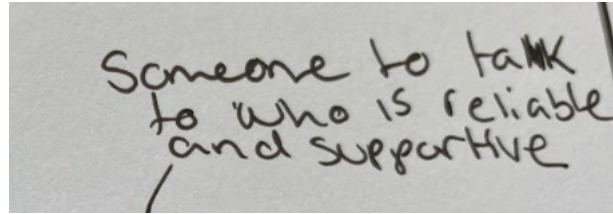 Someone to talk
to who is reliable
and supportive